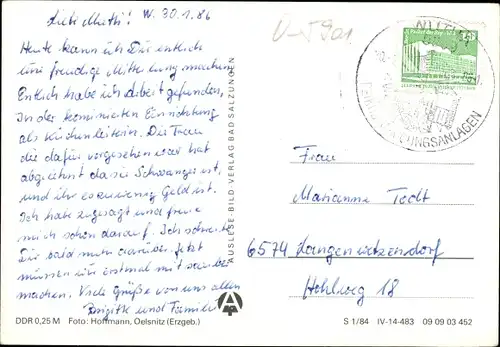 Liebe Mutti! W. 30.1.86
Heute kann ich Dir endlich
eine freudige Mitteilung machen.
Endlich habe ich Arbeit gefunden,
In der kominierten Einrichtung
als Küchenleiterin. Die Frau
die dafür vorgesehen war hat
abgelehnt da sie Schwanger ist
und ihr es zu wenig Geld ist.
Ich habe zugesagt und freue
mich schon darauf. Ich schreibe
Dir bald mehr darüber jetzt
müssen wir erstmal mit
machen. Viele Grüße von uns allen
Brigitte und Familie
DDR 0,25 M Foto: Hoffmann, Oelsnitz (Erzgeb.)
AUSLESE-BILD-VERLAG BAD SALZUNGEN
S 1/84 IV-14-483 09 09 03 452
Frau
Marianne Todt
6574 Langenwetzendorf
Hohlweg 18